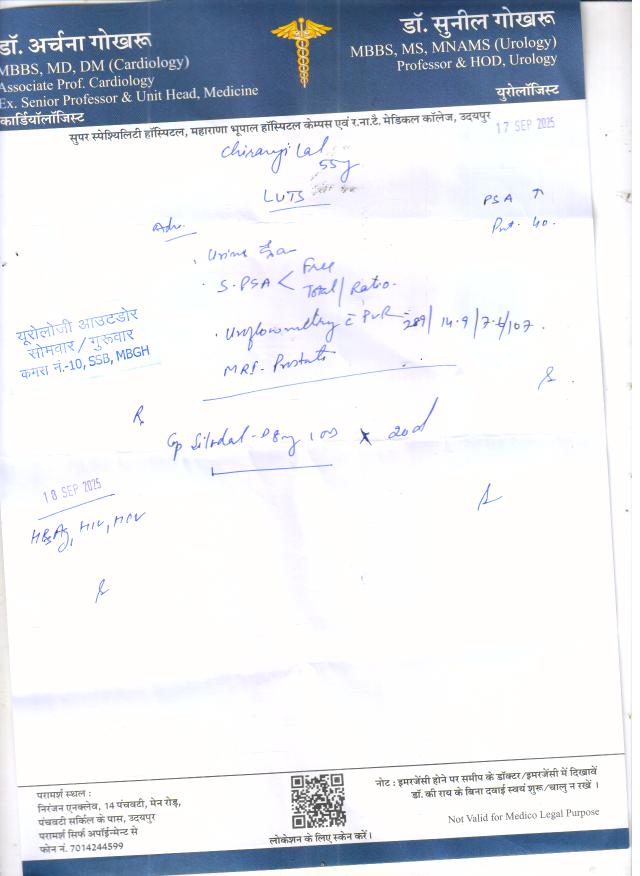 डॉ. अर्चना गोखरू
MBBS, MD, DM (Cardiology)
Associate Prof. Cardiology
Ex. Senior Professor & Unit Head, Medicine
कार्डियॉलॉजिस्ट
डॉ. सुनील गोखरू
MBBS, MS, MNAMS (Urology)
Professor & HOD, Urology
युरोलॉजिस्ट
सुपर स्पेश्यिलिटी हॉस्पिटल, महाराणा भूपाल हॉस्पिटल केम्पस एवं र.ना.टै. मेडिकल कॉलेज, उदयपुर
17 SEP 2025
Chiranji Lal
55y
LUTS
PSA ↑
40.
Adv.
Urine
S. PSA < Free
Total/Ratio.
Uroflowmetry c̄ PVR 289/14.9/7.6/107.
MRI- Prostate
यूरोलॉजी आउटडोर
सोमवार / गुरूवार
कमरा नं.-10, SSB, MBGH
R
Cap Silodal-D8mg 1 OD x 20d
18 SEP 2025
HBsAg, HIV, HCV
परामर्श स्थल :
निरंजन एनक्लेव, 14 पंचवटी, मेन रोड़,
पंचवटी सर्किल के पास, उदयपुर
परामर्श सिर्फ अपॉईन्मेण्ट से
फोन नं. 7014244599
लोकेशन के लिए स्केन करें।
नोट : इमरजेंसी होने पर समीप के डॉक्टर/इमरजेंसी में दिखावें
डॉ. की राय के बिना दवाई स्वयं शुरू/चालु न रखें ।
Not Valid for Medico Legal Purpose